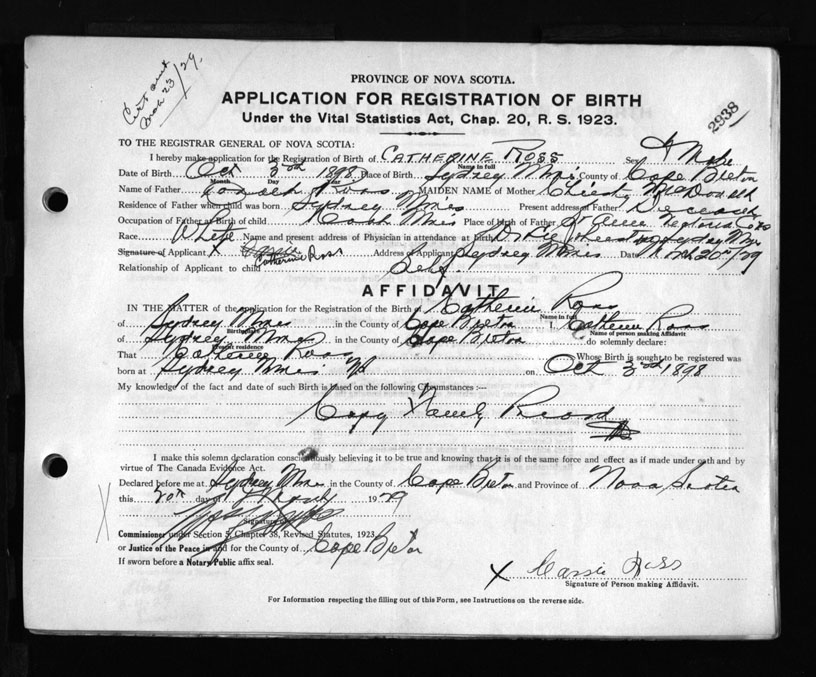 Cert sent
Mar 23/29.
PROVINCE OF NOVA SCOTIA.
APPLICATION FOR REGISTRATION OF BIRTH
Under the Vital Statistics Act, Chap. 20, R. S. 1923.
2938
TO THE REGISTRAR GENERAL OF NOVA SCOTIA:
I hereby make application for the Registration of Birth of CATHERINE ROSS Sex
Name in full
Date of Birth Oct 3rd 1898 Place of Birth Sydney Mines County of Cape Breton
Month Day Year
Name of Father Joseph Ross MAIDEN NAME of Mother Christy McDonald
Residence of Father when child was born Sydney Mines Present address of Father Deceased
Occupation of Father at Birth of child Place of Birth of Father
Race White Name and present address of Physician in attendance at birth Sydney Mines
Signature of Applicant X Cassie Catherine Ross Address of Applicant Sydney Mines Date March 20th/29
Relationship of Applicant to child Self
AFFIDAVIT
IN THE MATTER of the application for the Registration of the Birth of Catherine Ross
Name in full
of Sydney Mines in the County of Cape Breton I, Catherine Ross
Birthplace Name of person making Affidavit
of Sydney Mines in the County of Cape Breton do solemnly declare:
Present residence
That Catherine Ross Whose Birth is sought to be registered was
born at Sydney Mines NS on Oct 3rd 1898
My knowledge of the fact and date of such Birth is based on the following Circumstances :—
Copy Family Record
I make this solemn declaration conscientiously believing it to be true and knowing that it is of the same force and effect as if made under oath and by
virtue of The Canada Evidence Act.
Declared before me at Sydney Mines in the County of Cape Breton and Province of Nova Scotia
this 20th day of March 1929
Signature of
Commissioner under Section 5, Chapter 38, Revised Statutes, 1923
or Justice of the Peace in and for the County of Cape Breton
If sworn before a Notary Public affix seal.
X Cassie Ross
Signature of Person making Affidavit.
For Information respecting the filling out of this Form, see Instructions on the reverse side.